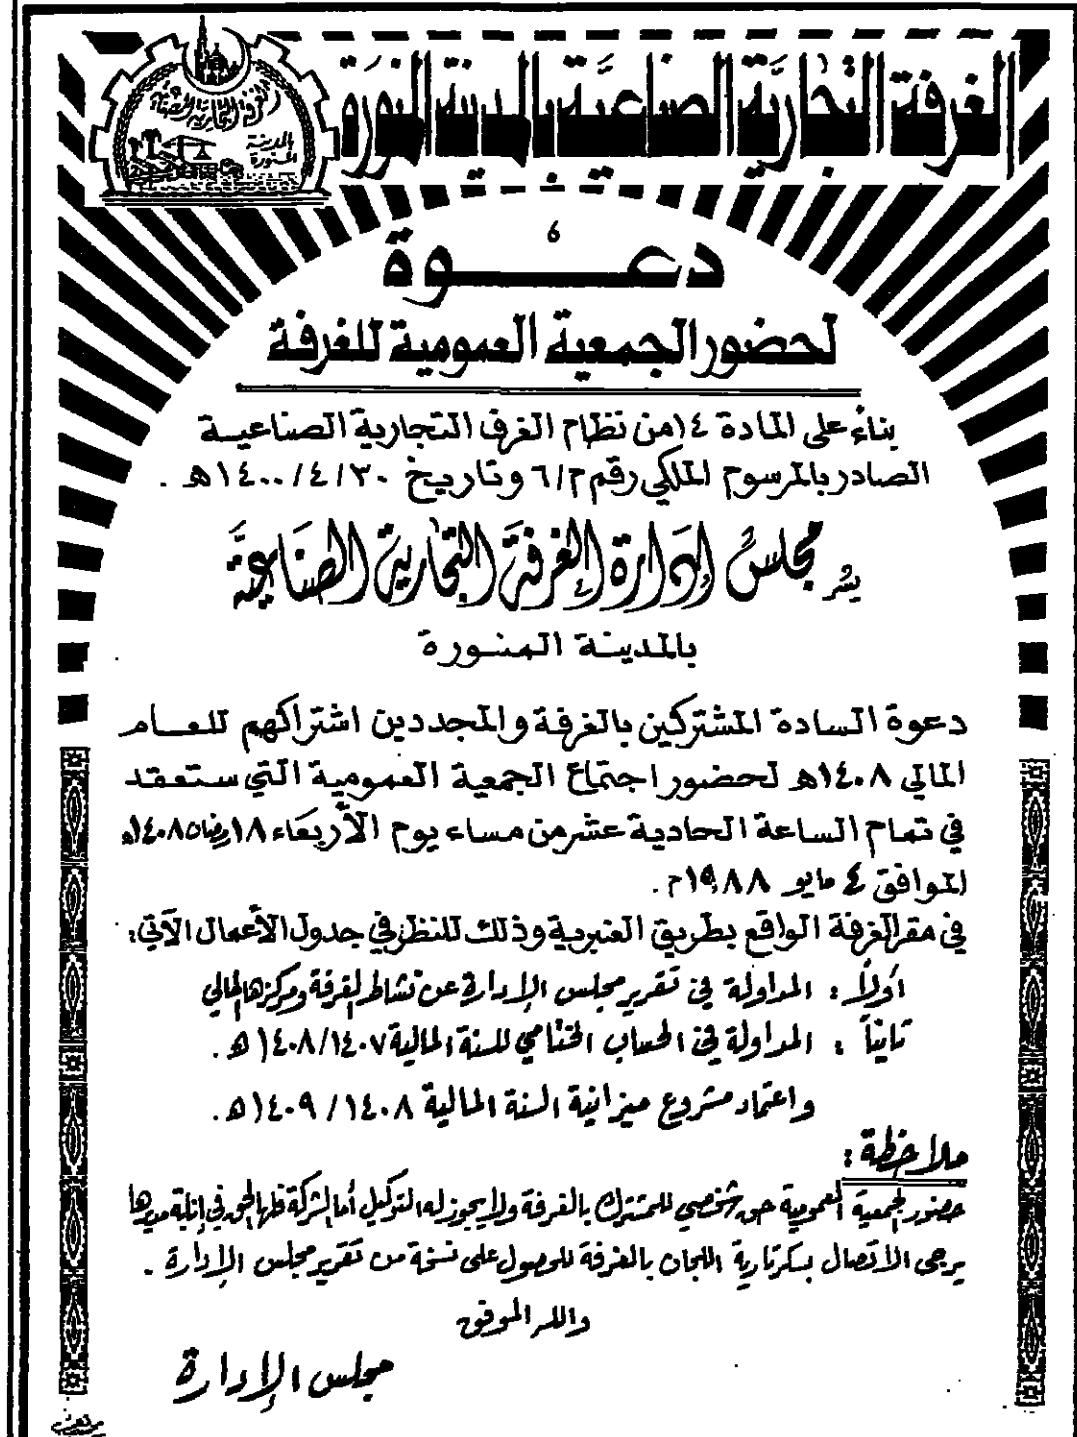 الغرفة التجارية الصناعية بالمدينة المنورة
الغرفة التجارية الصناعية
بالمدينة
المنورة
دعوة
لحضور الجمعية العمومية للغرفة
بناءً على المادة ١٤ من نظام الغرف التجارية الصناعية
الصادر بالمرسوم الملكي رقم م/٦ وتاريخ ١٤٠٠/٤/٣٠هـ .
يسر مجلس إدارة الغرفة التجارية الصناعية
بالمدينة المنورة
دعوة السادة المشتركين بالغرفة والمجددين اشتراكهم للعام
المالي ١٤٠٨هـ لحضور اجتماع الجمعية العمومية التي ستعقد
في تمام الساعة الحادية عشر من مساء يوم الأربعاء ١٨ رمضان ١٤٠٨هـ
الموافق ٤ مايو ١٩٨٨م .
في مقر الغرفة الواقع بطريق العنبرية وذلك للنظر في جدول الأعمال الآتي:
أولاً : المداولة في تقرير مجلس الإدارة عن نشاط الغرفة ومركزها المالي
ثانياً : المداولة في الحساب الختامي للسنة المالية ١٤٠٨/١٤٠٧هـ .
واعتماد مشروع ميزانية السنة المالية ١٤٠٨ / ١٤٠٩هـ .
ملاحظة :
حضور الجمعية العمومية حق شخصي للمشترك بالغرفة ولا يجوز له التوكيل أما الشركة فلها الحق في إنابة مديرها
يرجى الاتصال بسكرتارية اللجان بالغرفة للحصول على نسخة من تقرير مجلس الإدارة .
والله الموفق
مجلس الإدارة